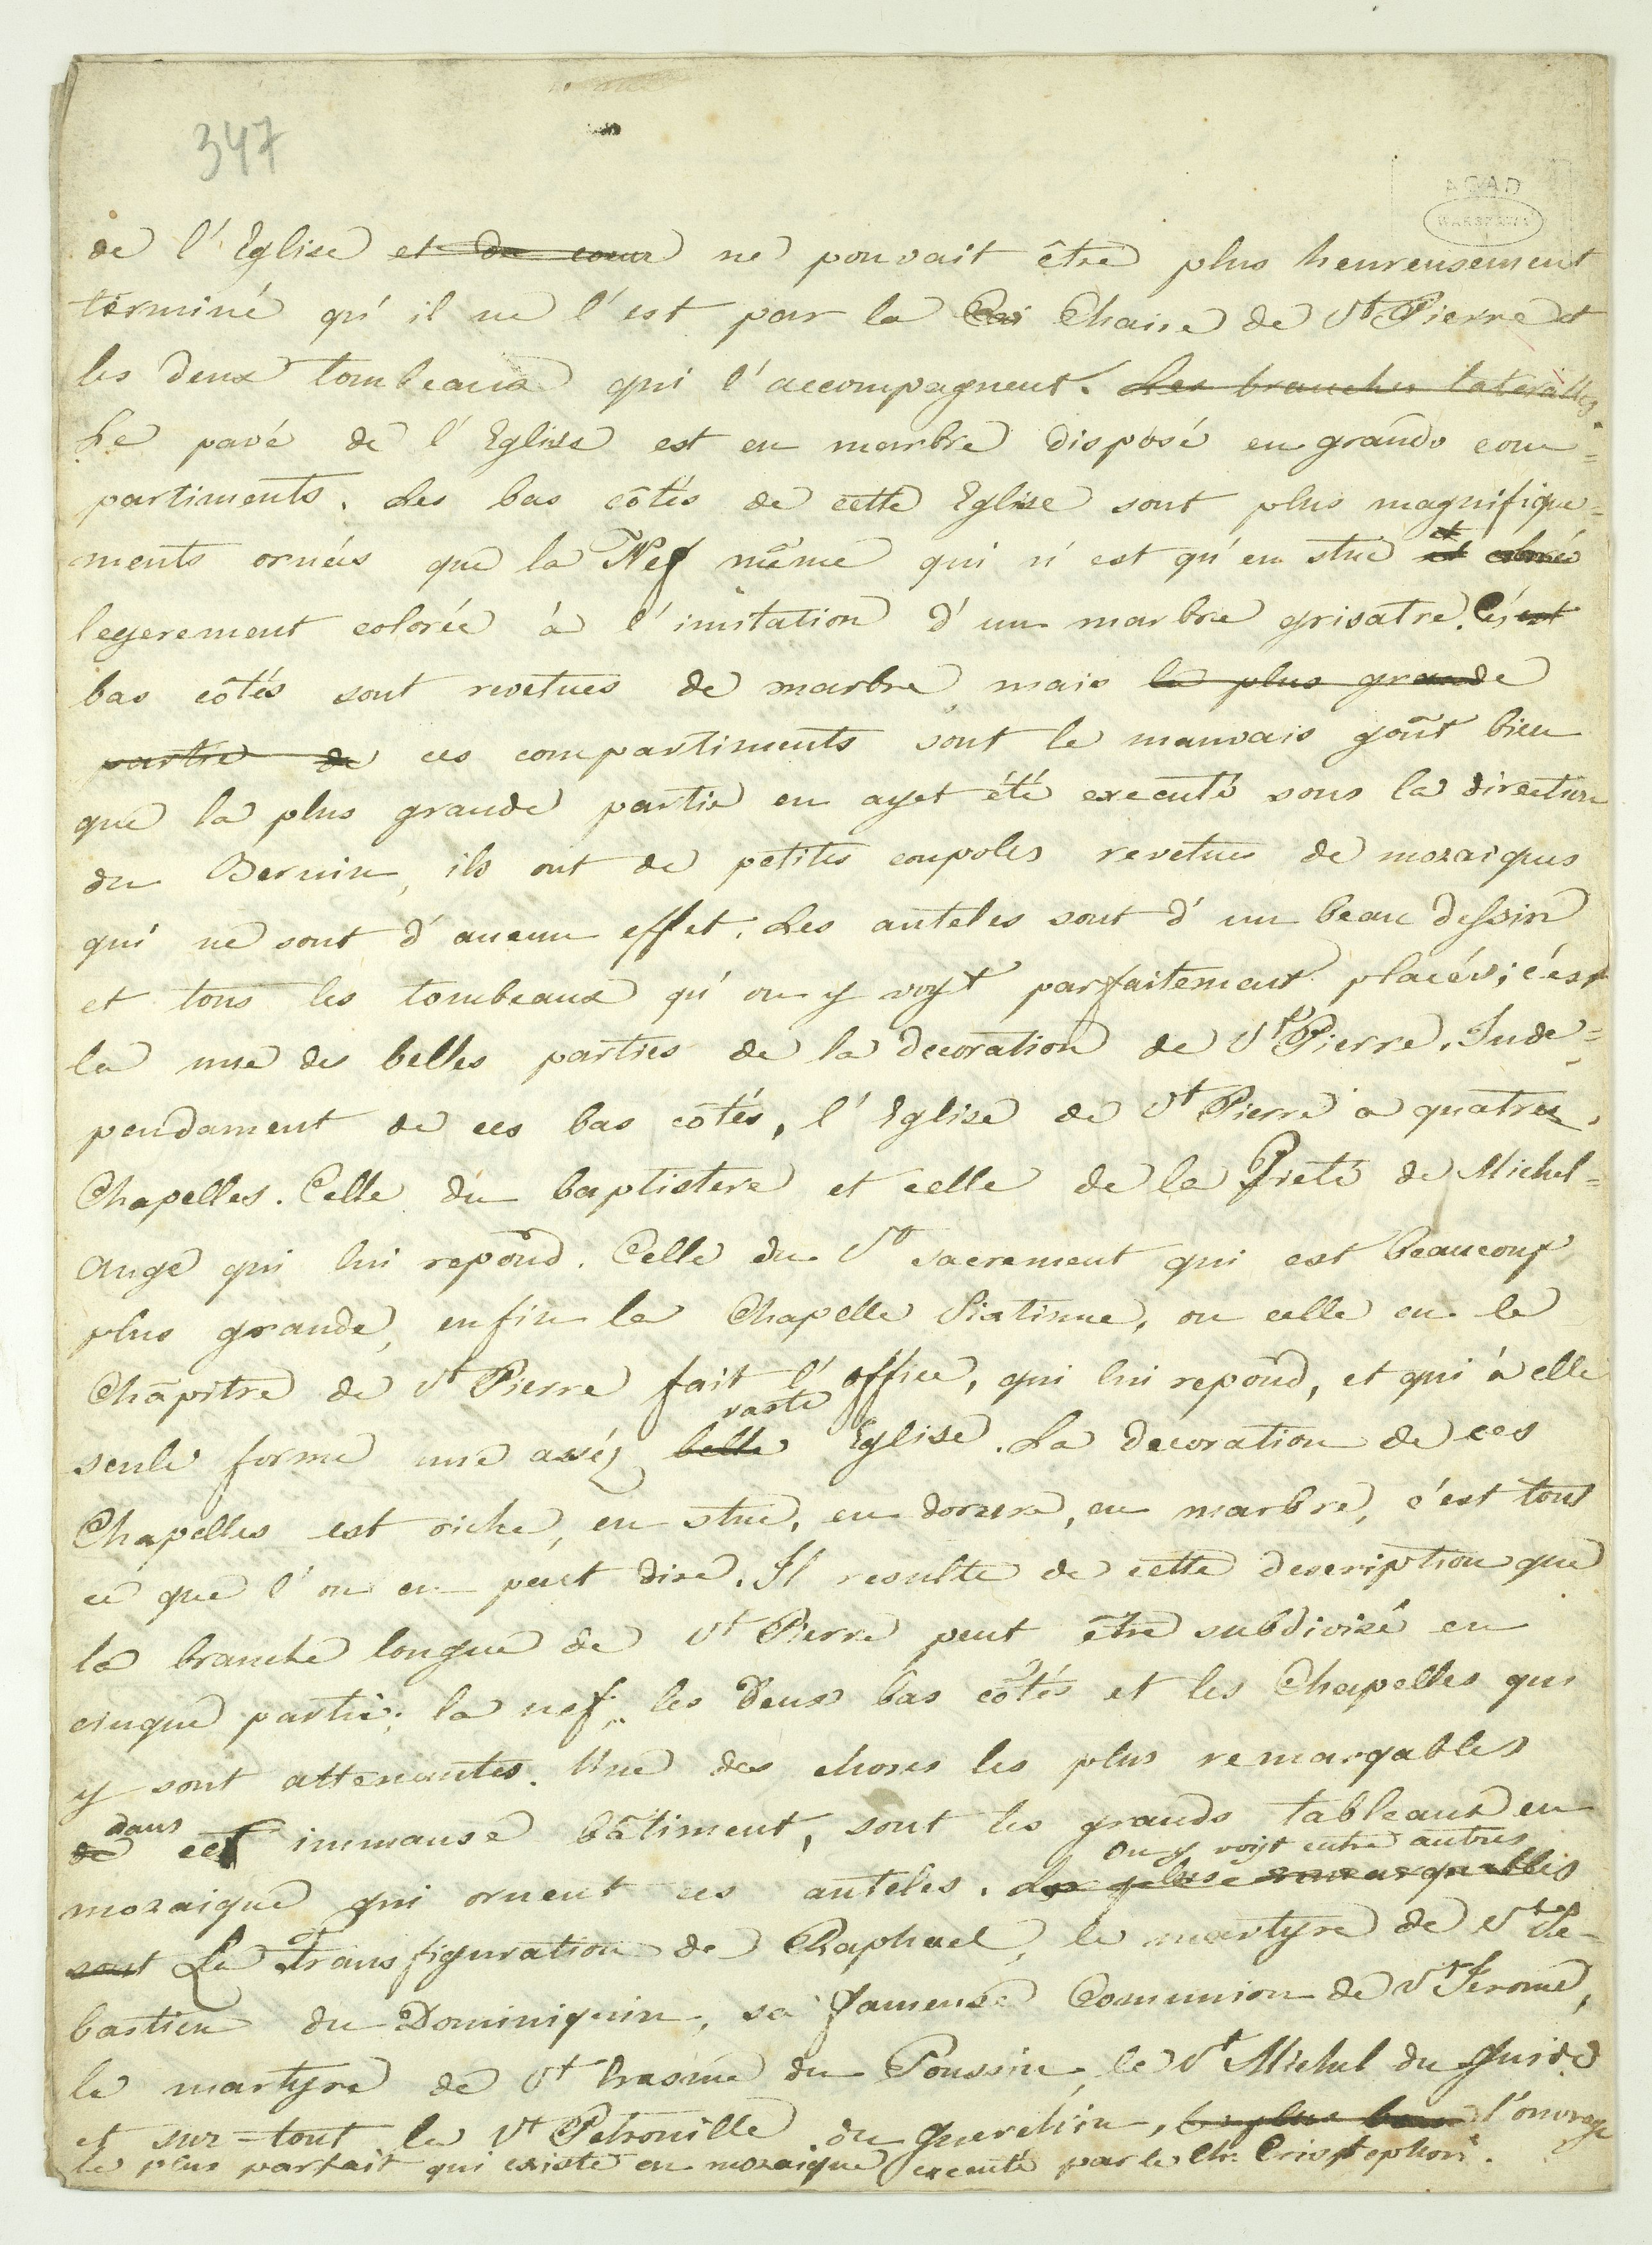 347
AGAD
WARSZAWA
de l'Eglise et du coeur ne pouvait être plus heureusement
terminé qu'il ne l'est par la Chaise de St Pierre et
les deux tombeaux qui l'accompagnent. Les branches lateralles
Le pavé de l'Eglise est en marbre disposé en grands com=
partiments. Les bas côtés de cette Eglise sont plus magnifique=
ments ornées que la Nef même qui n'est qu'en stuc et
legerement colorée à l'imitation d'un marbre grisatre. Ces
bas côtés sont revetues de marbre mais la plus grande
partie de ces compartiments sont le mauvais goût bien
que la plus grande partie en ayet été executé sous la direction
du Bernin, ils ont de petites coupoles revetues de mozaiques
qui ne sont d'aucun effet. Les auteles sont d'un beau dessin
et tous les tombeaux qu'on y voyt parfaitement placés; c'est
la une des belles parties de la decoration de St Pierre. Inde=
pendament de ces bas côtés, l'Eglise de St Pierre a quatres
Chapelles. Celle du baptistere et celle de la Pieté de Michel=
Ange qui lui repond. Celle du St sacrement qui est beaucoup
plus grande, enfin la Chapelle Sixtinne, ou celle ou le
Chapitre de St Pierre fait l'office, qui lui repond, et qui à elle
seule forme une assés belle vaste Eglise. La decoration de ces
Chapelles est riche, en stuc, en dorure, en marbre, c'est tout
ce que l'on en peut dire. Il resulte de cette description que
la branche longue de St Pierre peut être subdivisé en
cinque partie; la nef, les deux bas côtés et les Chapelles qui
y sont attenantes. Une des choses les plus remarqables
de dans cet immanse bâtiment, sont les grands tableaux en
mozaique qui ornent ces auteles. Les plus remarquables On y voyt entre autres
sont La Transfiguration de Raphael, le martyre de St Se-
bastien du Dominiquin, sa fameuse Comunion de St Jerome,
le martyre de St Erasme du Poussin, le St Michel du Guide
et sur-tout la St Petronille du Guerchin, le plus beau l'ouvrage
le plus parfait qui existe en mozaique executé par le Ch: Cristophori.